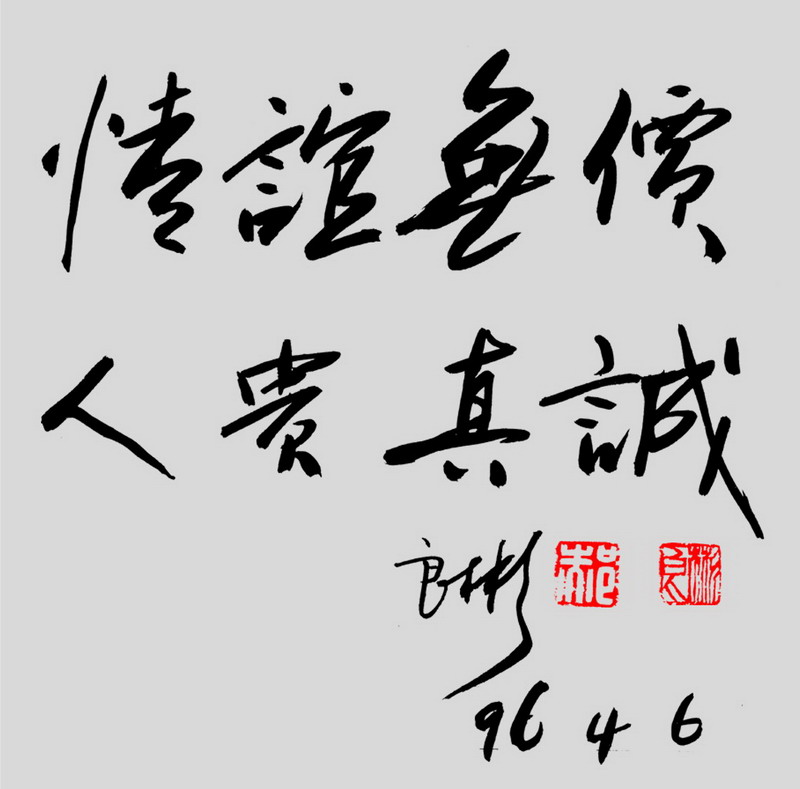 情誼無價
人貴真誠
良彬
郝 良彬
96 4 6